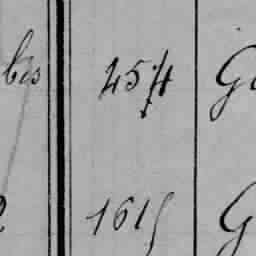 bis 454 G
2 1615 G